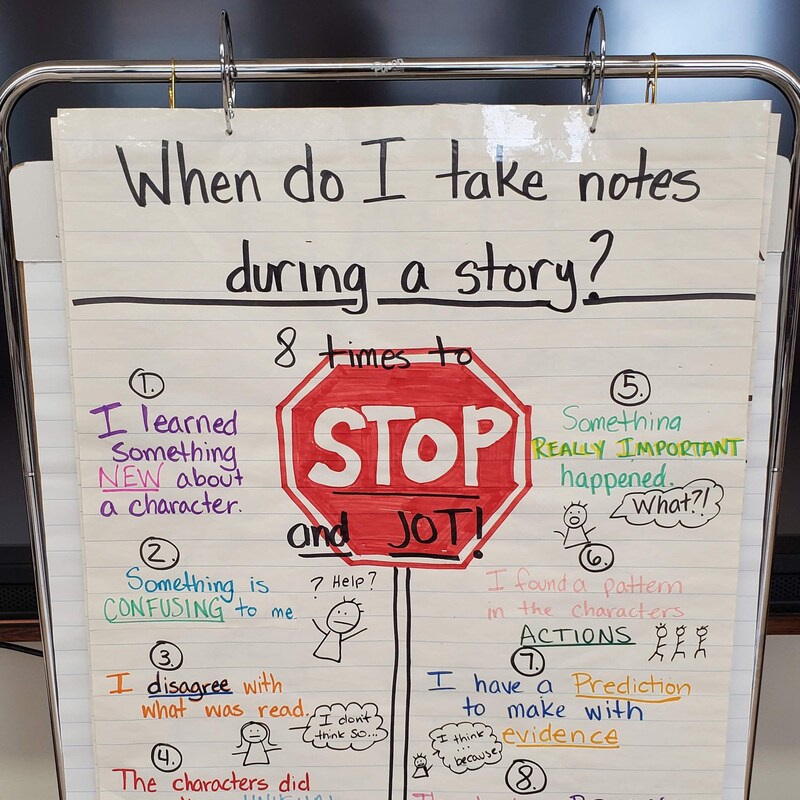 When do I take notes
during a story?
8 times to
STOP
and JOT!
1.
I learned
something
NEW about
a character.
2.
Something is
CONFUSING to me
? Help?
3.
I disagree with
what was read.
I don't
think so...
4.
The characters did
5.
Something
REALLY IMPORTANT
happened.
What?!
6.
I found a pattern
in the characters
ACTIONS
7.
I have a Prediction
to make with
evidence
I think
...
because
8.